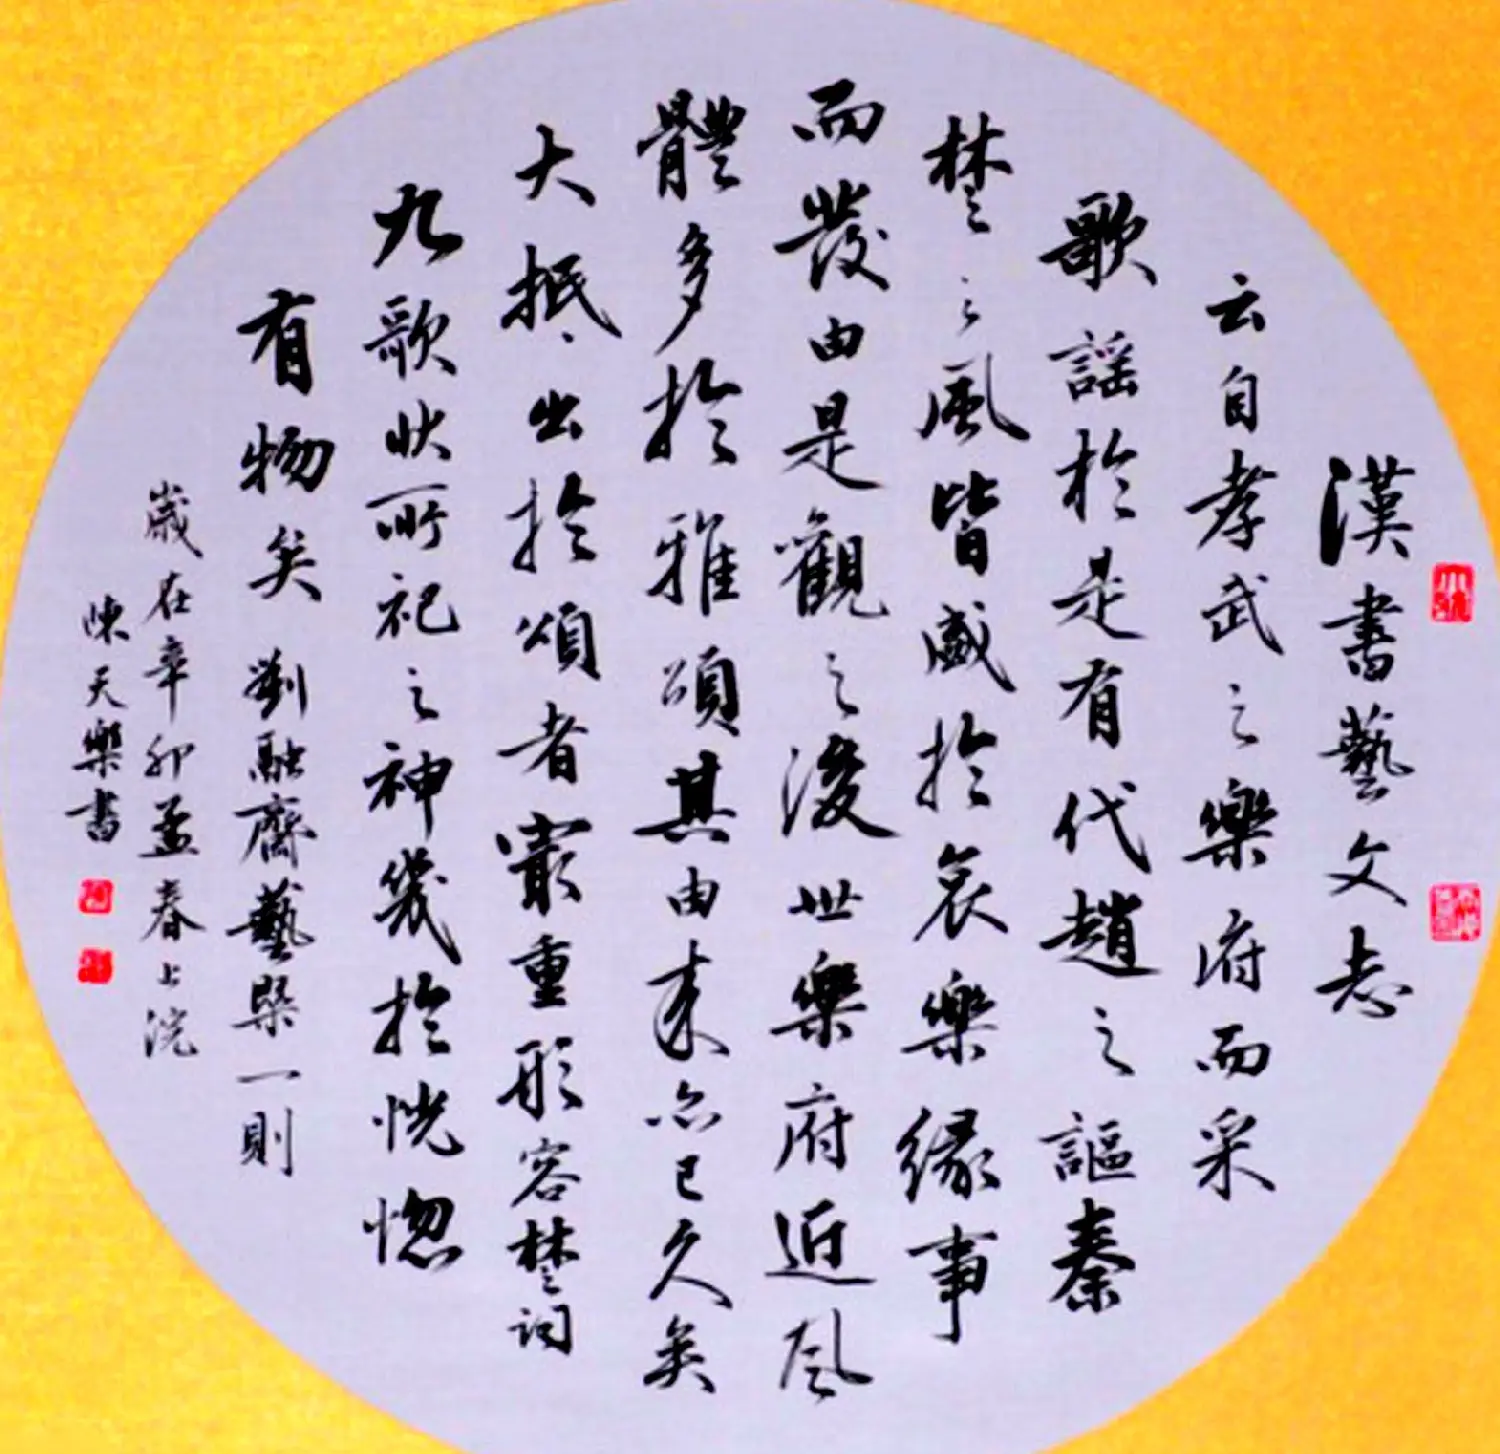 漢書藝文志
云自孝武之樂府而采
歌謡於是有代趙之謳秦
楚之風皆感於哀樂緣事
而發由是觀之後世樂府近風
體多於雅頌其由来亦已久矣
大抵出於頌者最重形容楚詞
九歌狀所祀之神幾於恍惚
有物矣 劉融齋藝槩一則
歲在辛卯孟春上浣
陳天樂書